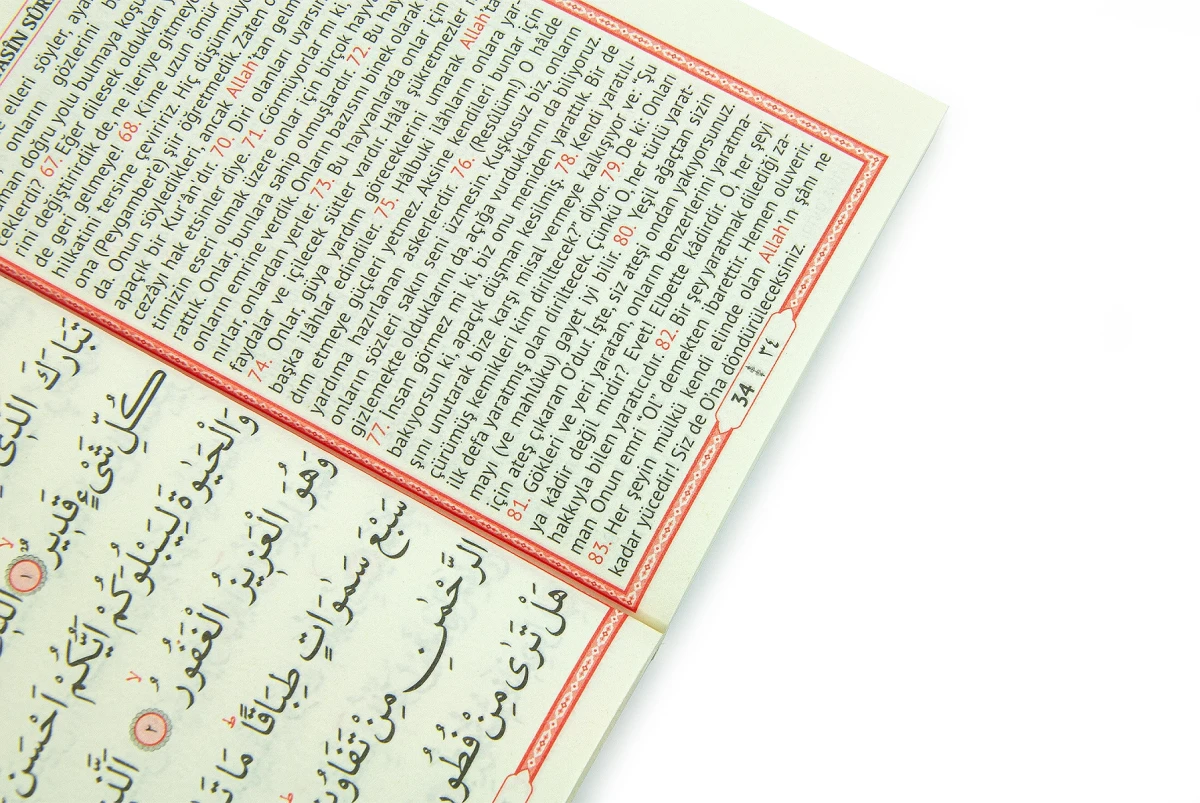 ÂSÎN SÛR
etleri söyler, aya
onların gözlerini b
man doğru yolu bulmaya koşu
lerdi? 67. Eğer dilesek oldukları y
rini değiştirirdik de, ne ileriye gitmeye
de geri gelmeye! 68. Kime uzun ömür
hilkatini tersine çeviririz. Hiç düşünmüyo
ona (Peygambere) şiir öğretmedik. Zaten o
da. Onun söyledikleri, ancak Allah'tan gelm
apaçık bir Kur'ân'dır. 70. Diri olanları uyarsın
cezâyı hak etsinler diye. 71. Görmüyorlar mı ki,
timizin eseri olmak üzere onlar için birçok hayv
rattık. Onlar, bunlara sahip olmuşlardır. 72. Bu hay
onların emrine verdik. Onların bazısını binek olarak
nırlar, onlardan yerler. 73. Bu hayvanlarda onlar için
faydalar ve içilecek sütler vardır. Hâlâ şükretmezler
74. Onlar, güya yardım göreceklerini umarak Allah'ta
başka ilâhlar edindiler. 75. Hâlbuki ilâhların onlara yar-
dım etmeye güçleri yetmez. Aksine kendileri bunlar için
yardıma hazırlanan askerlerdir. 76. (Resûlüm) O hâlde
onların sözleri sakın seni üzmesin. Kuşkusuz biz, onların
gizlemekte olduklarını da, açığa vurduklarını da biliyoruz.
77. İnsan görmez mi ki, biz onu meniden yarattık. Bir de
bakıyorsun ki, apaçık düşman kesilmiş. 78. Kendi yaratılı-
şını unutarak bize karşı misal vermeye kalkışıyor ve: “Şu
çürümüş kemikleri kim diriltecek?” diyor. 79. De ki: Onları
ilk defa yaratmış olan diriltecek. Çünkü O, her türlü yarat-
mayı (ve mahlûku) gayet iyi bilir. 80. Yeşil ağaçtan sizin
için ateş çıkaran O'dur. İşte, siz ateşi ondan yakıyorsunuz.
81. Gökleri ve yeri yaratan, onların benzerlerini yaratma-
ya kâdir değil midir? Evet! Elbette kâdirdir. O, her şeyi
hakkıyla bilen yaratıcıdır. 82. Bir şey yaratmak dilediği za-
man Onun emri “Ol” demekten ibarettir. Hemen oluverir.
83. Her şeyin mülkü kendi elinde olan Allah'ın şânı ne
kadar yücedir! Siz de O'na döndürüleceksiniz.
34 ٣٤
تَبَارَكَ الَّذ۪ي
كُلِّ شَيْءٍ قَد۪يرٌۙ ١
وَالْحَيٰوةَ لِيَبْلُوَكُمْ اَيُّكُمْ اَحْسَنُ
وَهُوَ الْعَز۪يزُ الْغَفُورُۙ ٢ اَلَّذ
سَبْعَ سَمٰوَاتٍ طِبَاقًاۜ مَا تَ
الرَّحْمٰنِ مِنْ تَفَاوُتٍۜ
هَلْ تَرٰى مِنْ فُطُورٍ